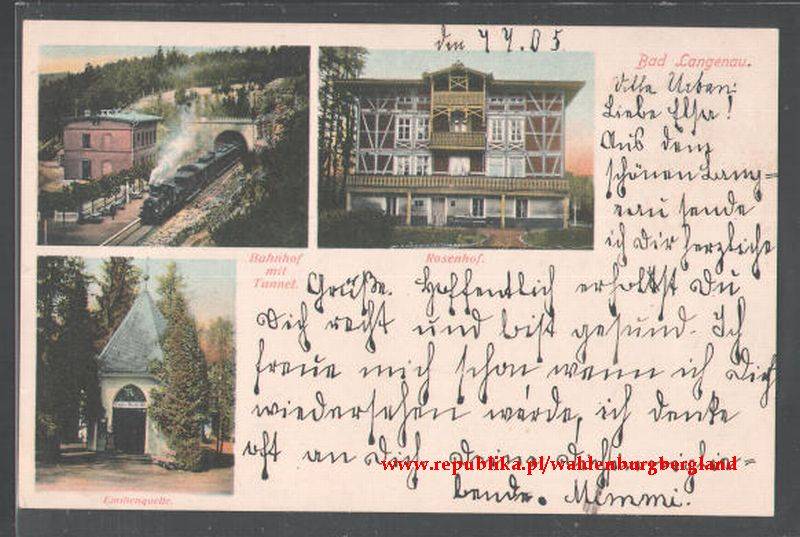 den 7 7. 05
Bad Langenau.
Villa Urban:
Liebe Elsa!
Aus dem
schönen Lang=
enau sende
ich Dir herzliche
Bahnhof
mit
Tunnel.
Rosenhof.
Grüße. Hoffentlich erholst Du
Dich recht und bist gesund. Ich
freue mich schon wenn ich Dich
wiedersehen werde, ich denke
oft an Dich Deine Dich
www.republika.pl/waldenburgbergland
bende. Mimmi.
Emilienquelle.